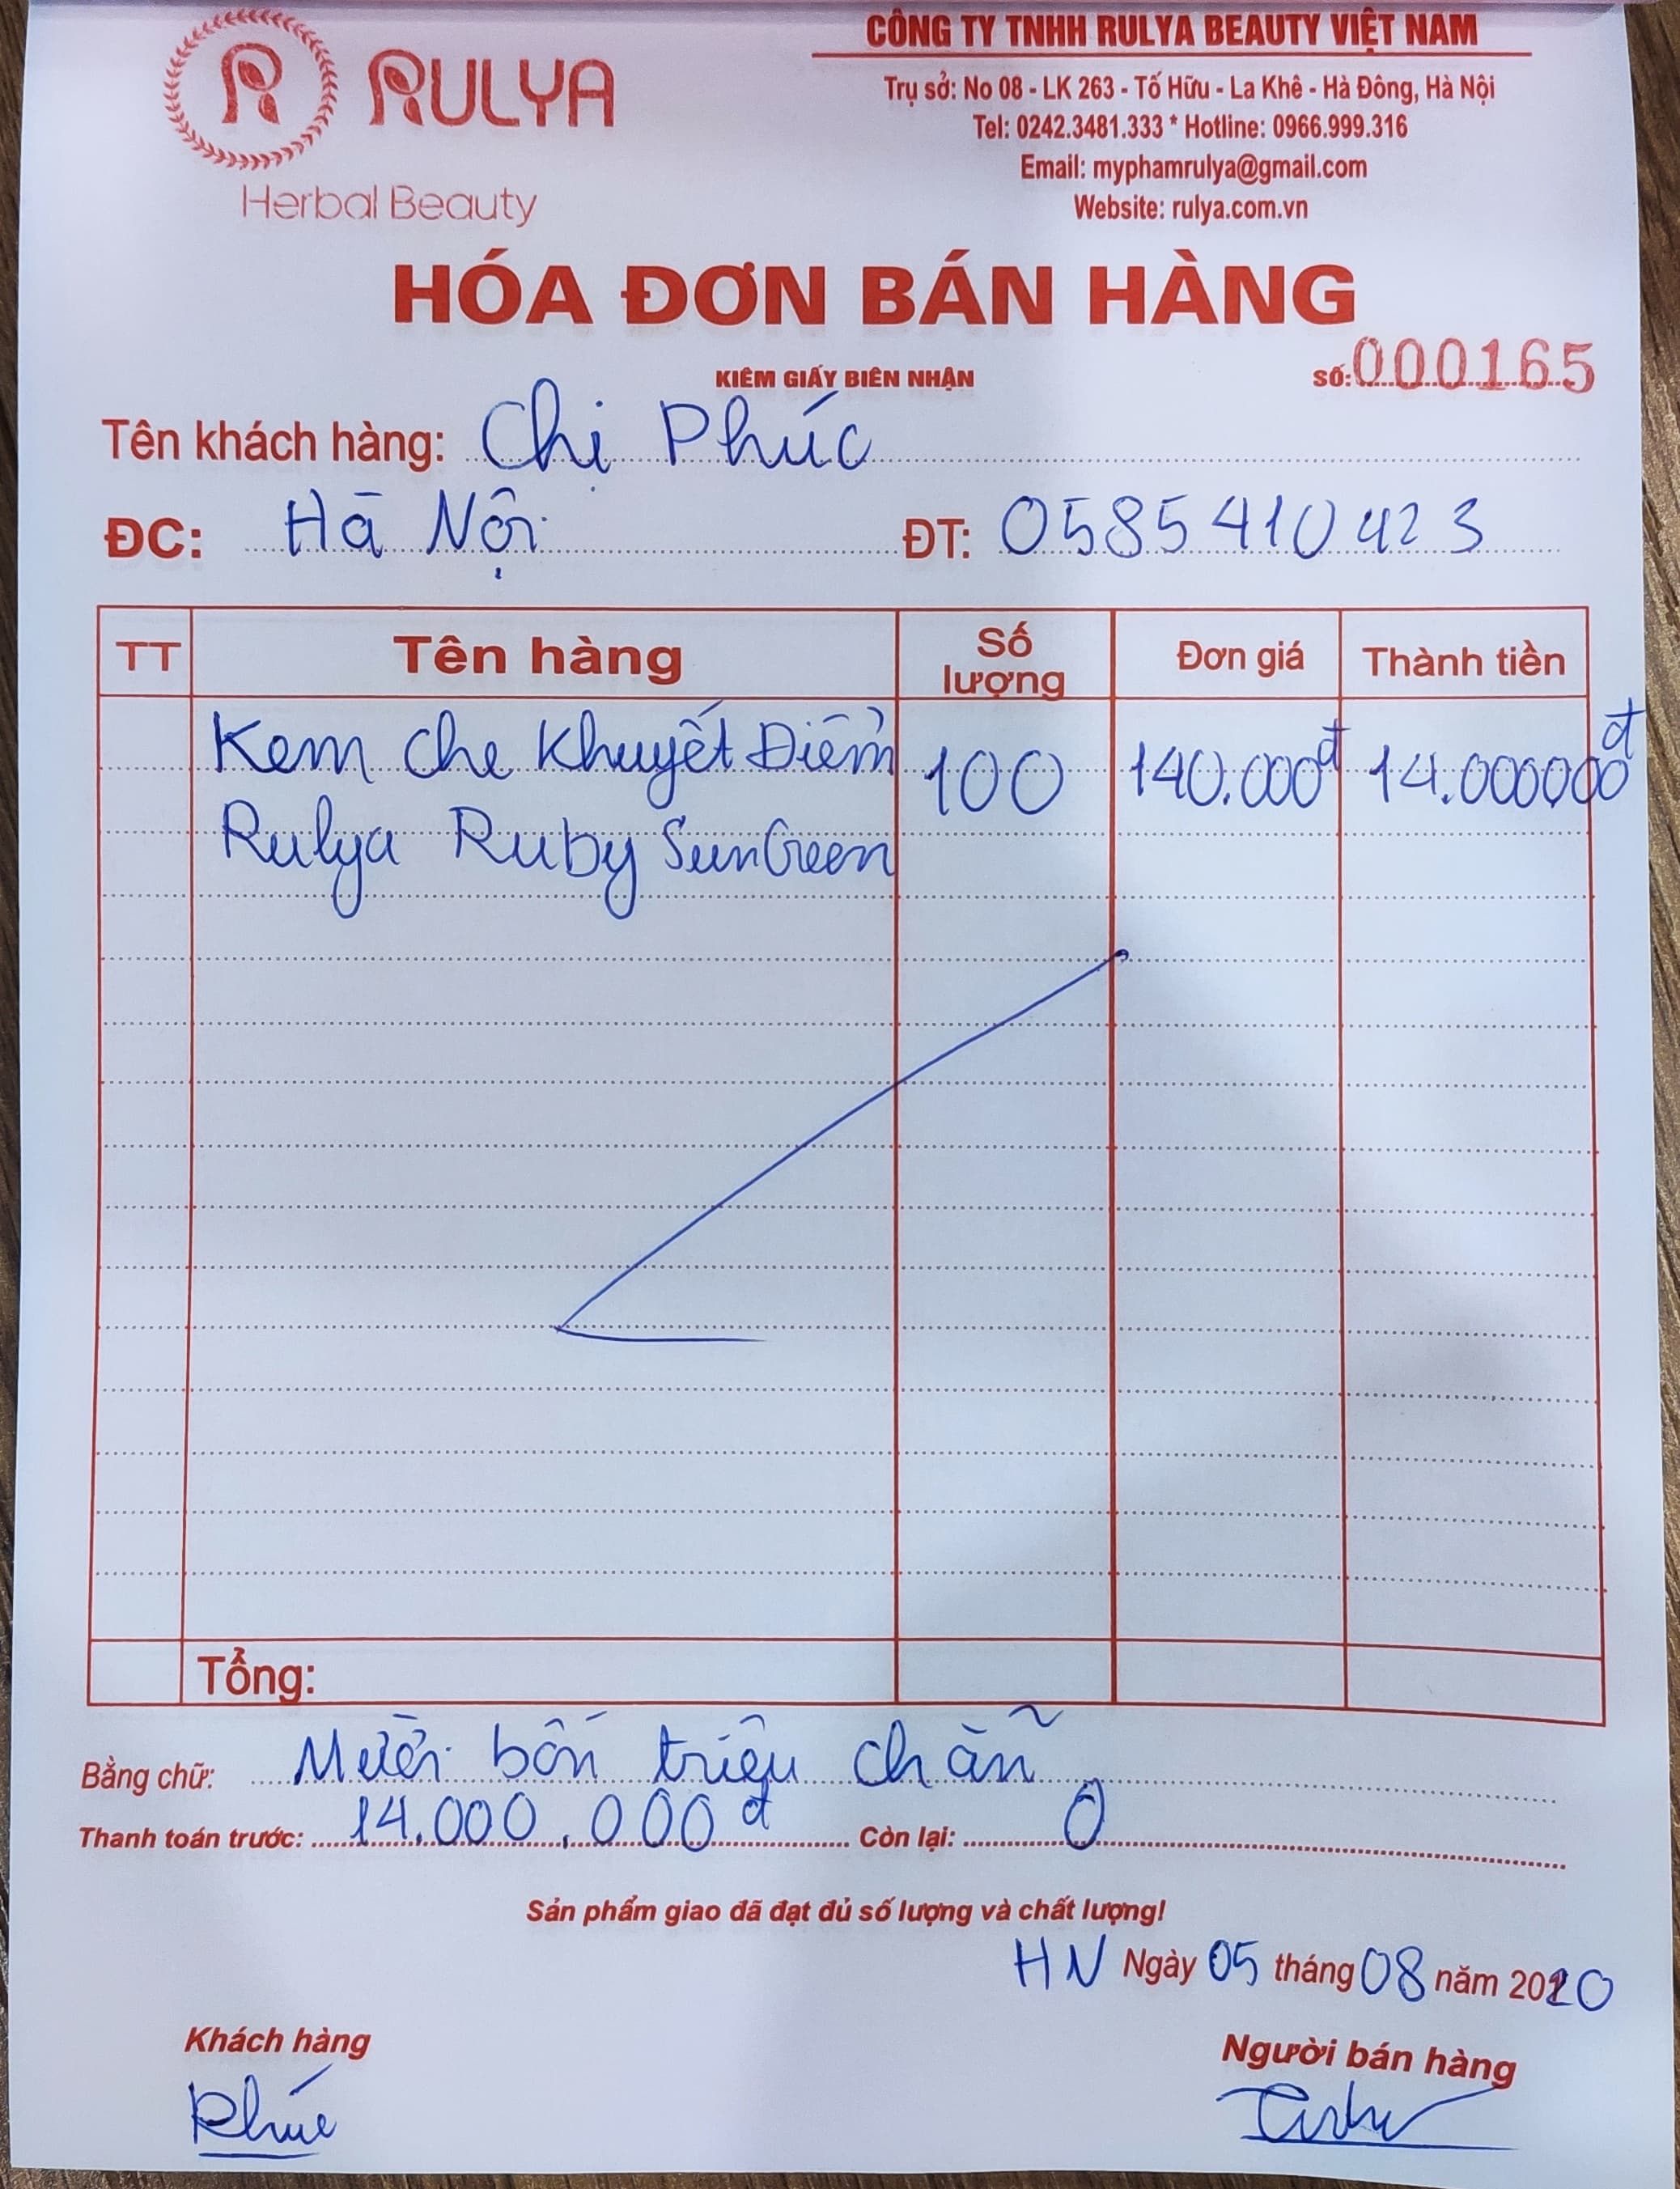 R RULYA
Herbal Beauty
CÔNG TY TNHH RULYA BEAUTY VIỆT NAM
Trụ sở: No 08 - LK 263 - Tố Hữu - La Khê - Hà Đông, Hà Nội
Tel: 0242.3481.333 * Hotline: 0966.999.316
Email: myphamrulya@gmail.com
Website: rulya.com.vn
HÓA ĐƠN BÁN HÀNG
KIÊM GIẤY BIÊN NHẬN
SỐ: 000165
Tên khách hàng: Chị Phúc
ĐC: Hà Nội ĐT: 0585410423
TT Tên hàng Số lượng Đơn giá Thành tiền
Kem Che Khuyết Điểm 100 140.000đ 14.000000đ
Rulya Ruby SunGreen
Tổng:
Bằng chữ: Mười bốn triệu chẵn
Thanh toán trước: 14.000.000đ Còn lại: 0
Sản phẩm giao đã đạt đủ số lượng và chất lượng!
HN Ngày 05 tháng 08 năm 2020
Khách hàng Người bán hàng
Phúc